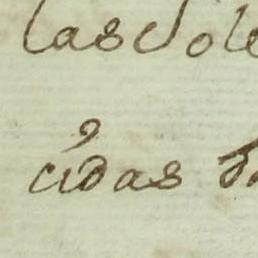 las dole
cidas